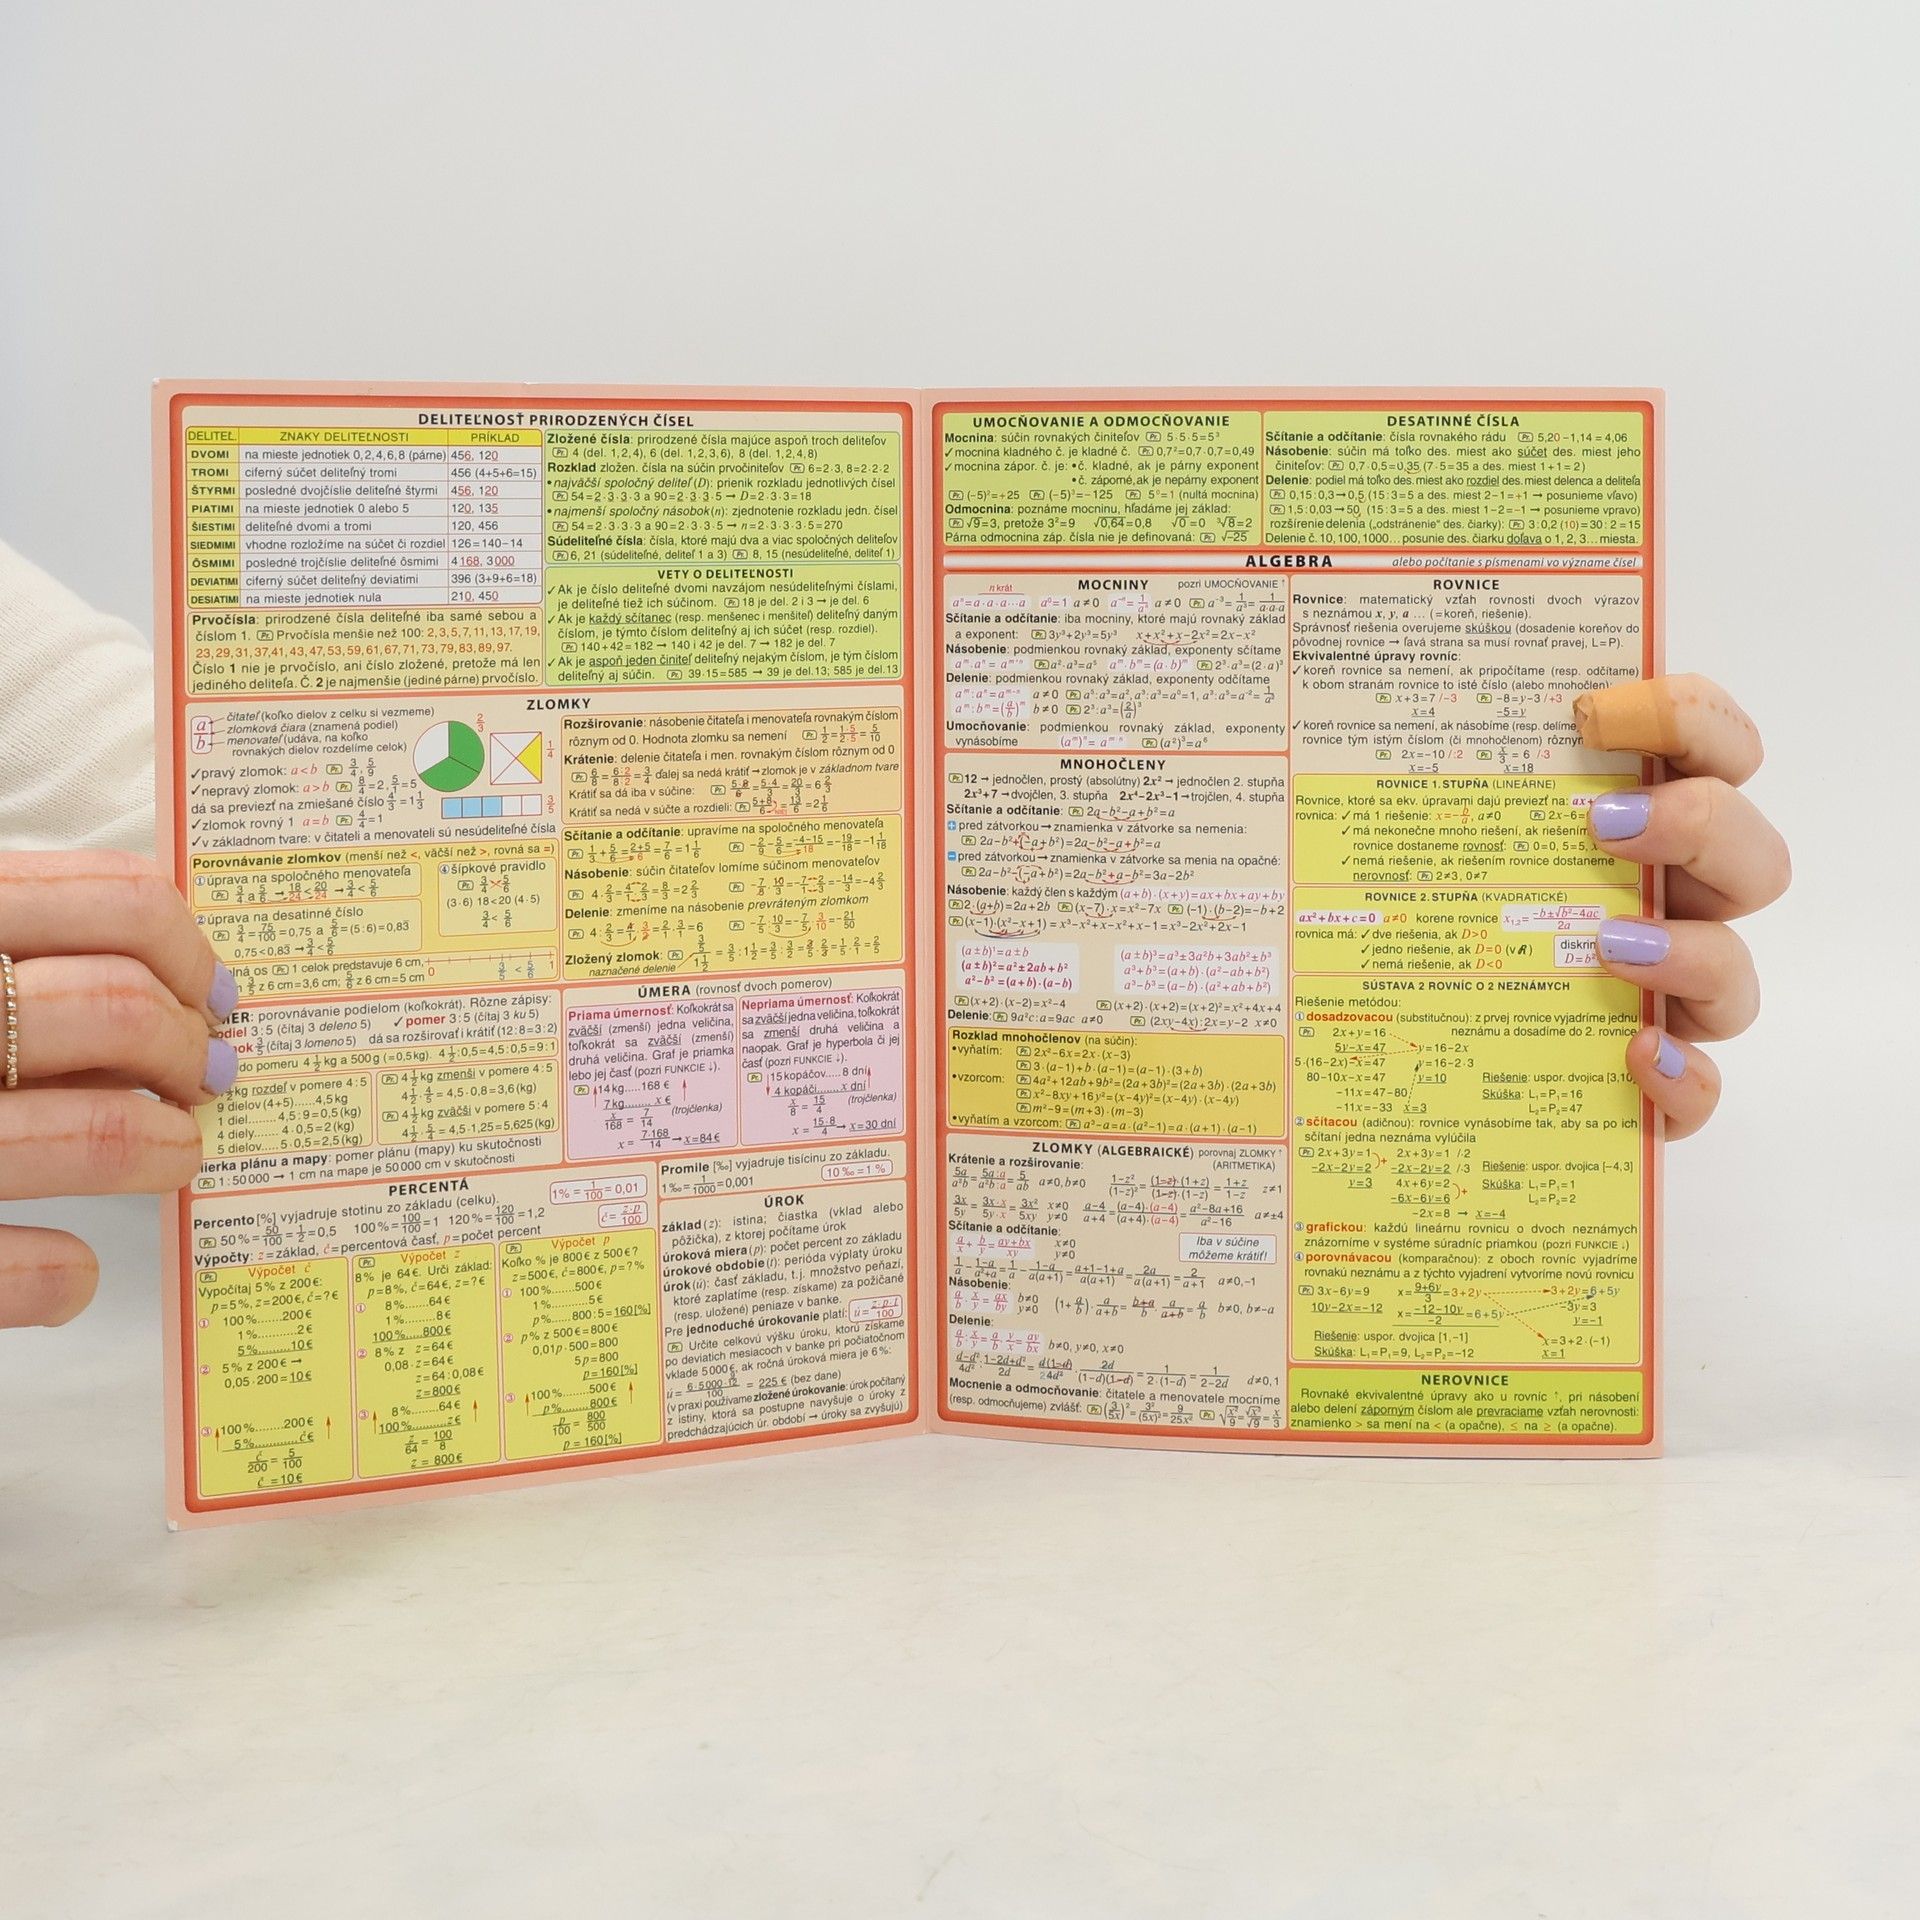 DELITEĽNOSŤ PRIRODZENÝCH ČÍSEL
DELITEĽ. ZNAKY DELITEĽNOSTI PRÍKLAD
DVOMI na mieste jednotiek 0,2,4,6,8 (párne) 456, 120
TROMI ciferný súčet deliteľný tromi 456 (4+5+6=15)
ŠTYRMI posledné dvojčíslie deliteľné štyrmi 456, 120
PIATIMI na mieste jednotiek 0 alebo 5 120, 135
ŠIESTIMI deliteľné dvomi a tromi 120, 456
SIEDMIMI vhodne rozložíme na súčet či rozdiel 126=140-14
ÔSMIMI posledné trojčíslie deliteľné ôsmimi 4168, 3000
DEVIATIMI ciferný súčet deliteľný deviatimi 396 (3+9+6=18)
DESIATIMI na mieste jednotiek nula 210, 450
Prvočísla: prirodzené čísla deliteľné iba samé sebou a
číslom 1. Pr. Prvočísla menšie než 100: 2,3,5,7,11,13,17,19,
23,29,31,37,41,43,47,53,59,61,67,71,73,79,83,89,97.
Číslo 1 nie je prvočíslo, ani číslo zložené, pretože má len
jediného deliteľa. Č. 2 je najmenšie (jediné párne) prvočíslo.
Zložené čísla: prirodzené čísla majúce aspoň troch deliteľov
Pr. 4 (del. 1,2,4), 6 (del. 1,2,3,6), 8 (del. 1,2,4,8)
Rozklad zložen. čísla na súčin prvočiniteľov Pr. 6=2·3, 8=2·2·2
• najväčší spoločný deliteľ (D): prienik rozkladu jednotlivých čísel
Pr. 54=2·3·3·3 a 90=2·3·3·5 → D=2·3·3=18
• najmenší spoločný násobok (n): zjednotenie rozkladu jedn. čísel
Pr. 54=2·3·3·3 a 90=2·3·3·5 → n=2·3·3·3·5=270
Súdeliteľné čísla: čísla, ktoré majú dva a viac spoločných deliteľov
Pr. 6, 21 (súdeliteľné, deliteľ 1 a 3) Pr. 8, 15 (nesúdeliteľné, deliteľ 1)
VETY O DELITEĽNOSTI
✓ Ak je číslo deliteľné dvomi navzájom nesúdeliteľnými číslami,
je deliteľné tiež ich súčinom. Pr. 18 je del. 2 i 3 → je del. 6
✓ Ak je každý sčítanec (resp. menšenec i menšiteľ) deliteľný daným
číslom, je týmto číslom deliteľný aj ich súčet (resp. rozdiel).
Pr. 140+42=182 → 140 i 42 je del. 7 → 182 je del. 7
✓ Ak je aspoň jeden činiteľ deliteľný nejakým číslom, je tým číslom
deliteľný aj súčin. Pr. 39·15=585 → 39 je del.13; 585 je del.13
ZLOMKY
a čitateľ (koľko dielov z celku si vezmeme)
zlomková čiara (znamená podiel)
b menovateľ (udáva, na koľko
rovnakých dielov rozdelíme celok)
2/3 1/4 3/5
✓ pravý zlomok: a<b Pr. 3/4, 5/9
✓ nepravý zlomok: a>b Pr. 8/4=2, 5/1=5
dá sa previezť na zmiešané číslo 4/3=1 1/3
✓ zlomok rovný 1 a=b Pr. 4/4=1
✓ v základnom tvare: v čitateli a menovateli sú nesúdeliteľné čísla
Porovnávanie zlomkov (menší než <, väčší než >, rovná sa =)
① úprava na spoločného menovateľa
Pr. 3/4 a 5/6 → 18/24 < 20/24 → 3/4 < 5/6
② úprava na desatinné číslo
Pr. 3/4=75/100=0,75 a 5/6=(5:6)=0,83
0,75<0,83 → 3/4<5/6
④ šípkové pravidlo
Pr. 3/4 5/6
(3·6) 18<20 (4·5)
3/4 < 5/6
lná os Pr. 1 celok predstavuje 6 cm,
3/5 z 6 cm=3,6 cm; 5/6 z 6 cm=5 cm 0 3/5 < 5/6 1
Rozširovanie: násobenie čitateľa i menovateľa rovnakým číslom
rôznym od 0. Hodnota zlomku sa nemení Pr. 1/2=1·5/2·5=5/10
Krátenie: delenie čitateľa i men. rovnakým číslom rôznym od 0
Pr. 6/8=6:2/8:2=3/4 ďalej sa nedá krátiť → zlomok je v základnom tvare
Krátiť sa dá iba v súčine:
Krátiť sa nedá v súčte a rozdieli:
Sčítanie a odčítanie: upravíme na spoločného menovateľa
Pr. 1/3+5/6=2+5/6=7/6=1 1/6 Pr. -2/9-5/6=-4-15/18=-19/18=-1 1/18
Násobenie: súčin čitateľov lomíme súčinom menovateľov
Pr. 4·2/3=4/1·2/3=8/3=2 2/3
Delenie: zmeníme na násobenie prevráteným zlomkom
Pr. 4:2/3=4/1·3/2=2/1·3/1=6 Pr. -7/5:10/3=-7/5·3/10=-21/50
Zložený zlomok:
naznačené delenie
ER: porovnávanie podielom (koľkokrát). Rôzne zápisy:
odiel 3:5 (čítaj 3 deleno 5) ✓ pomer 3:5 (čítaj 3 ku 5)
ok 3/5 (čítaj 3 lomeno 5) dá sa rozširovať i krátiť (12:8=3:2)
do pomeru 4 1/2 kg a 500 g (=0,5 kg). 4 1/2:0,5=4,5:0,5=9:1
kg rozdeľ v pomere 4:5
9 dielov (4+5)......4,5 kg
1 diel....... 4,5:9=0,5 (kg)
4 diely....... 4·0,5=2 (kg)
5 dielov..... 5·0,5=2,5 (kg)
Pr. 4 1/2 kg zmenši v pomere 4:5
4 1/2·4/5=4,5·0,8=3,6 (kg)
Pr. 4 1/2 kg zväčši v pomere 5:4
4 1/2·5/4=4,5·1,25=5,625 (kg)
ierka plánu a mapy: pomer plánu (mapy) ku skutočnosti
Pr. 1:50000 → 1 cm na mape je 50000 cm v skutočnosti
ÚMERA (rovnosť dvoch pomerov)
Priama úmernosť: Koľkokrát sa
zväčší (zmenší) jedna veličina,
toľkokrát sa zväčší (zmenší)
druhá veličina. Graf je priamka
lebo jej časť (pozri FUNKCIE ↓).
Pr. 14 kg.....168 €
7 kg........x €
x/168 = 7/14 (trojčlenka)
x = 7·168/14 → x=84 €
Nepriama úmernosť: Koľkokrát
sa zväčší jedna veličina, toľkokrát
sa zmenší druhá veličina a
naopak. Graf je hyperbola či jej
časť (pozri FUNKCIE ↓).
Pr. 15 kopáčov.... 8 dní
4 kopáči..... x dní
x/8 = 15/4 (trojčlenka)
x = 15·8/4 → x=30 dní
PERCENTÁ
1% = 1/100 = 0,01
Percento [%] vyjadruje stotinu zo základu (celku).
Pr. 50%=50/100=1/2=0,5 100%=100/100=1 120%=120/100=1,2
č=z·p/100
Výpočty: z=základ, č=percentová časť, p=počet percent
Pr. Výpočet č
Vypočítaj 5% z 200 €:
p=5%, z=200 €, č=? €
① 100%......200 €
1%...........2 €
5%..........10 €
② 5% z 200 € →
0,05·200=10 €
③ 100%........200 €
5%..........č €
č/200 = 5/100
č = 10 €
Pr. Výpočet z
8% je 64 €. Urči základ:
p=8%, č=64 €, z=? €
① 8%.......64 €
1%.........8 €
100%.....800 €
② 8% z z=64 €
0,08·z=64 €
z=64:0,08 €
z=800 €
③ 8%.......64 €
100%.......z €
z/64 = 100/8
z = 800 €
Pr. Výpočet p
Koľko % je 800 € z 500 €?
z=500 €, č=800 €, p=?%
① 100%......500 €
1%..........5 €
p%......800:5=160 [%]
② p% z 500 €=800 €
0,01p·500=800
5p=800
p=160 [%]
③ 100%......500 €
p%........800 €
p/100 = 800/500
p = 160 [%]
Promile [‰] vyjadruje tisícinu zo základu.
1‰=1/1000=0,001 10‰=1%
ÚROK
základ (z): istina; čiastka (vklad alebo
pôžička), z ktorej počítame úrok
úroková miera (p): počet percent zo základu
úrokové obdobie (t): perióda výplaty úroku
úrok (ú): časť základu, t.j. množstvo peňazí,
ktoré zaplatíme (resp. získame) za požičané
(resp. uložené) peniaze v banke.
Pre jednoduché úrokovanie platí: ú=z·p·t/100
Pr. Určite celkovú výšku úroku, ktorú získame
po deviatich mesiacoch v banke pri počiatočnom
vklade 5000 €, ak ročná úroková miera je 6%:
= 225 € (bez dane)
(v praxi používame zložené úrokovanie: úrok počítaný
z istiny, ktorá sa postupne navyšuje o úroky z
predchádzajúcich úr. období → úroky sa zvyšujú)
UMOCŇOVANIE A ODMOCŇOVANIE
Mocnina: súčin rovnakých činiteľov Pr. 5·5·5=5³
✓ mocnina kladného č. je kladné č. Pr. 0,7²=0,7·0,7=0,49
✓ mocnina zápor. č. je: • č. kladné, ak je párny exponent
• č. záporné, ak je nepárny exponent
Pr. (-5)²=+25 Pr. (-5)³=-125 Pr. 5⁰=1 (nultá mocnina)
Odmocnina: poznáme mocninu, hľadáme jej základ:
Pr. √9=3, pretože 3²=9 √0,64=0,8 √0=0 ³√8=2
Párna odmocnina záp. čísla nie je definovaná: Pr. √-25
DESATINNÉ ČÍSLA
Sčítanie a odčítanie: čísla rovnakého rádu Pr. 5,20-1,14=4,06
Násobenie: súčin má toľko des. miest ako súčet des. miest jeho
činiteľov: Pr. 0,7·0,5=0,35 (7·5=35 a des. miest 1+1=2)
Delenie: podiel má toľko des. miest ako rozdiel des. miest delenca a deliteľa
Pr. 0,15:0,3→0,5 (15:3=5 a des. miest 2-1=+1 → posunieme vľavo)
Pr. 1,5:0,03→50 (15:3=5 a des. miest 1-2=-1 → posunieme vpravo)
rozšírenie delenia („odstránenie“ des. čiarky): Pr. 3:0,2 (10)=30:2=15
Delenie č. 10, 100, 1000... posunie des. čiarku doľava o 1, 2, 3... miesta.
ALGEBRA alebo počítanie s písmenami vo význame čísel
MOCNINY pozri UMOCŇOVANIE ↑
n krát
aⁿ=a·a·a...a a⁰=1 a≠0 a⁻ⁿ=1/aⁿ a≠0 Pr. a⁻³=1/a³=1/a·a·a
Sčítanie a odčítanie: iba mocniny, ktoré majú rovnaký základ
a exponent: Pr. 3y³+2y³=5y³ x+x²+x-2x²=2x-x²
Násobenie: podmienkou rovnaký základ, exponenty sčítame
aᵐ·aⁿ=aᵐ⁺ⁿ Pr. a²·a³=a⁵ aᵐ·bᵐ=(a·b)ᵐ Pr. 2³·a³=(2·a)³
Delenie: podmienkou rovnaký základ, exponenty odčítame
aᵐ:aⁿ=aᵐ⁻ⁿ a≠0 Pr. a⁵:a³=a², a³:a³=a⁰=1, a³:a⁵=a⁻²=1/a²
aᵐ:bᵐ=(a/b)ᵐ b≠0 Pr. 2³:a³=(2/a)³
Umocňovanie: podmienkou rovnaký základ, exponenty
vynásobíme (aᵐ)ⁿ=aᵐ·ⁿ Pr. (a²)³=a⁶
MNOHOČLENY
Pr. 12 → jednočlen, prostý (absolútny) 2x² → jednočlen 2. stupňa
2x³+7 → dvojčlen, 3. stupňa 2x⁴-2x³-1 → trojčlen, 4. stupňa
Sčítanie a odčítanie: Pr. 2a-b²-a+b²=a
+ pred zátvorkou → znamienka v zátvorke sa nemenia:
Pr. 2a-b²+(-a+b²)=2a-b²-a+b²=a
- pred zátvorkou → znamienka v zátvorke sa menia na opačné:
Pr. 2a-b²-(-a+b²)=2a-b²+a-b²=3a-2b²
Násobenie: každý člen s každým (a+b)·(x+y)=ax+bx+ay+by
Pr. 2·(a+b)=2a+2b Pr. (x-7)·x=x²-7x Pr. (-1)·(b-2)=-b+2
Pr. (x-1)·(x²-x+1)=x³-x²+x-x²+x-1=x³-2x²+2x-1
(a±b)¹=a±b
(a±b)²=a²±2ab+b²
a²-b²=(a+b)·(a-b)
(a±b)³=a³±3a²b+3ab²±b³
a³+b³=(a+b)·(a²-ab+b²)
a³-b³=(a-b)·(a²+ab+b²)
Pr. (x+2)·(x-2)=x²-4 Pr. (x+2)·(x+2)=(x+2)²=x²+4x+4
Delenie: Pr. 9a²c:a=9ac a≠0 Pr. (2xy-4x):2x=y-2 x≠0
Rozklad mnohočlenov (na súčin):
• vyňatím: Pr. 2x²-6x=2x·(x-3)
Pr. 3·(a-1)+b·(a-1)=(a-1)·(3+b)
• vzorcom: Pr. 4a²+12ab+9b²=(2a+3b)²=(2a+3b)·(2a+3b)
Pr. x²-8xy+16y²=(x-4y)²=(x-4y)·(x-4y)
Pr. m²-9=(m+3)·(m-3)
• vyňatím a vzorcom: Pr. a³-a=a·(a²-1)=a·(a+1)·(a-1)
ZLOMKY (ALGEBRAICKÉ) porovnaj ZLOMKY ↑
(ARITMETIKA)
Krátenie a rozširovanie:
5a/a²b=5a:a/a²b:a=5/ab a≠0, b≠0 1-z²/(1-z)²=(1-z)·(1+z)/(1-z)·(1-z)=1+z/1-z z≠1
3x/5y=3x·x/5y·x=3x²/5xy x≠0 y≠0 a-4/a+4=(a-4)·(a-4)/(a+4)·(a-4)=a²-8a+16/a²-16 a≠±4
Sčítanie a odčítanie:
a/x+b/y=ay+bx/xy x≠0 y≠0
Iba v súčine
môžeme krátiť!
a≠0,-1
Násobenie:
a/b·x/y=ax/by b≠0 y≠0 (1+a/b)·a/a+b=b+a/b·a/a+b=a/b b≠0, b≠-a
Delenie:
a/b:x/y=a/b·y/x=ay/bx b≠0, y≠0, x≠0
d≠0, 1
Mocnenie a odmocňovanie: čitatele a menovatele mocníme
(resp. odmocňujeme) zvlášť: Pr. (3/5x)²=3²/(5x)²=9/25x² Pr. √x²/9=√x²/√9=x/3
ROVNICE
Rovnice: matematický vzťah rovnosti dvoch výrazov
s neznámou x, y, a ... (=koreň, riešenie).
Správnosť riešenia overujeme skúškou (dosadenie koreňov do
pôvodnej rovnice → ľavá strana sa musí rovnať pravej, L=P).
Ekvivalentné úpravy rovníc:
✓ koreň rovnice sa nemení, ak pripočítame (resp. odčítame)
k obom stranám rovnice to isté číslo (alebo mnohočlen):
Pr. x+3=7 /-3 Pr. -8=y-3 /+3
x=4 -5=y
✓ koreň rovnice sa nemení, ak násobíme (resp. delíme
rovnice tým istým číslom (či mnohočlenom) rôznym
Pr. 2x=-10 /:2 Pr. x/3=6 /·3
x=-5 x=18
ROVNICE 1. STUPŇA (LINEÁRNE)
Rovnice, ktoré sa ekv. úpravami dajú previezť na: ax+
rovnica: ✓ má 1 riešenie: x=-b/a, a≠0 Pr. 2x-6=
✓ má nekonečne mnoho riešení, ak riešením
rovnice dostaneme rovnosť: Pr. 0=0, 5=5,
✓ nemá riešenie, ak riešením rovnice dostaneme
nerovnosť: Pr. 2≠3, 0≠7
ROVNICE 2. STUPŇA (KVADRATICKÉ)
ax²+bx+c=0 a≠0 korene rovnice x₁,₂=-b±√b²-4ac/2a
rovnica má: ✓ dve riešenia, ak D>0
✓ jedno riešenie, ak D=0 (v R) diskrim
✓ nemá riešenie, ak D<0 D=b²
SÚSTAVA 2 ROVNÍC O 2 NEZNÁMYCH
Riešenie metódou:
① dosadzovacou (substitučnou): z prvej rovnice vyjadríme jednu
neznámu a dosadíme do 2. rovnice
Pr. 2x+y=16
5y-x=47 y=16-2x
5·(16-2x)-x=47 y=16-2·3
80-10x-x=47 y=10 Riešenie: uspor. dvojica [3,10
-11x=47-80 Skúška: L₁=P₁=16
-11x=-33 x=3 L₂=P₂=47
② sčítacou (adičnou): rovnice vynásobíme tak, aby sa po ich
sčítaní jedna neznáma vylúčila
Pr. 2x+3y=1 2x+3y=1 /·2
-2x-2y=2 -2x-2y=2 /·3 Riešenie: uspor. dvojica [-4,3]
y=3 4x+6y=2 Skúška: L₁=P₁=1
-6x-6y=6 L₂=P₂=2
-2x=8 → x=-4
③ grafickou: každú lineárnu rovnicu o dvoch neznámych
znázorníme v systéme súradníc priamkou (pozri FUNKCIE ↓)
④ porovnávacou (komparačnou): z oboch rovníc vyjadríme
rovnakú neznámu a z týchto vyjadrení vytvoríme novú rovnicu
Pr. 3x-6y=9 x=9+6y/3=3+2y 3+2y=6+5y
10y-2x=-12 x=-12-10y/-2=6+5y -3y=3
y=-1
Riešenie: uspor. dvojica [1,-1] x=3+2·(-1)
Skúška: L₁=P₁=9, L₂=P₂=-12 x=1
NEROVNICE
Rovnaké ekvivalentné úpravy ako u rovníc ↑, pri násobení
alebo delení záporným číslom ale prevraciame vzťah nerovnosti:
znamienko > sa mení na < (a opačne), ≤ na ≥ (a opačne).